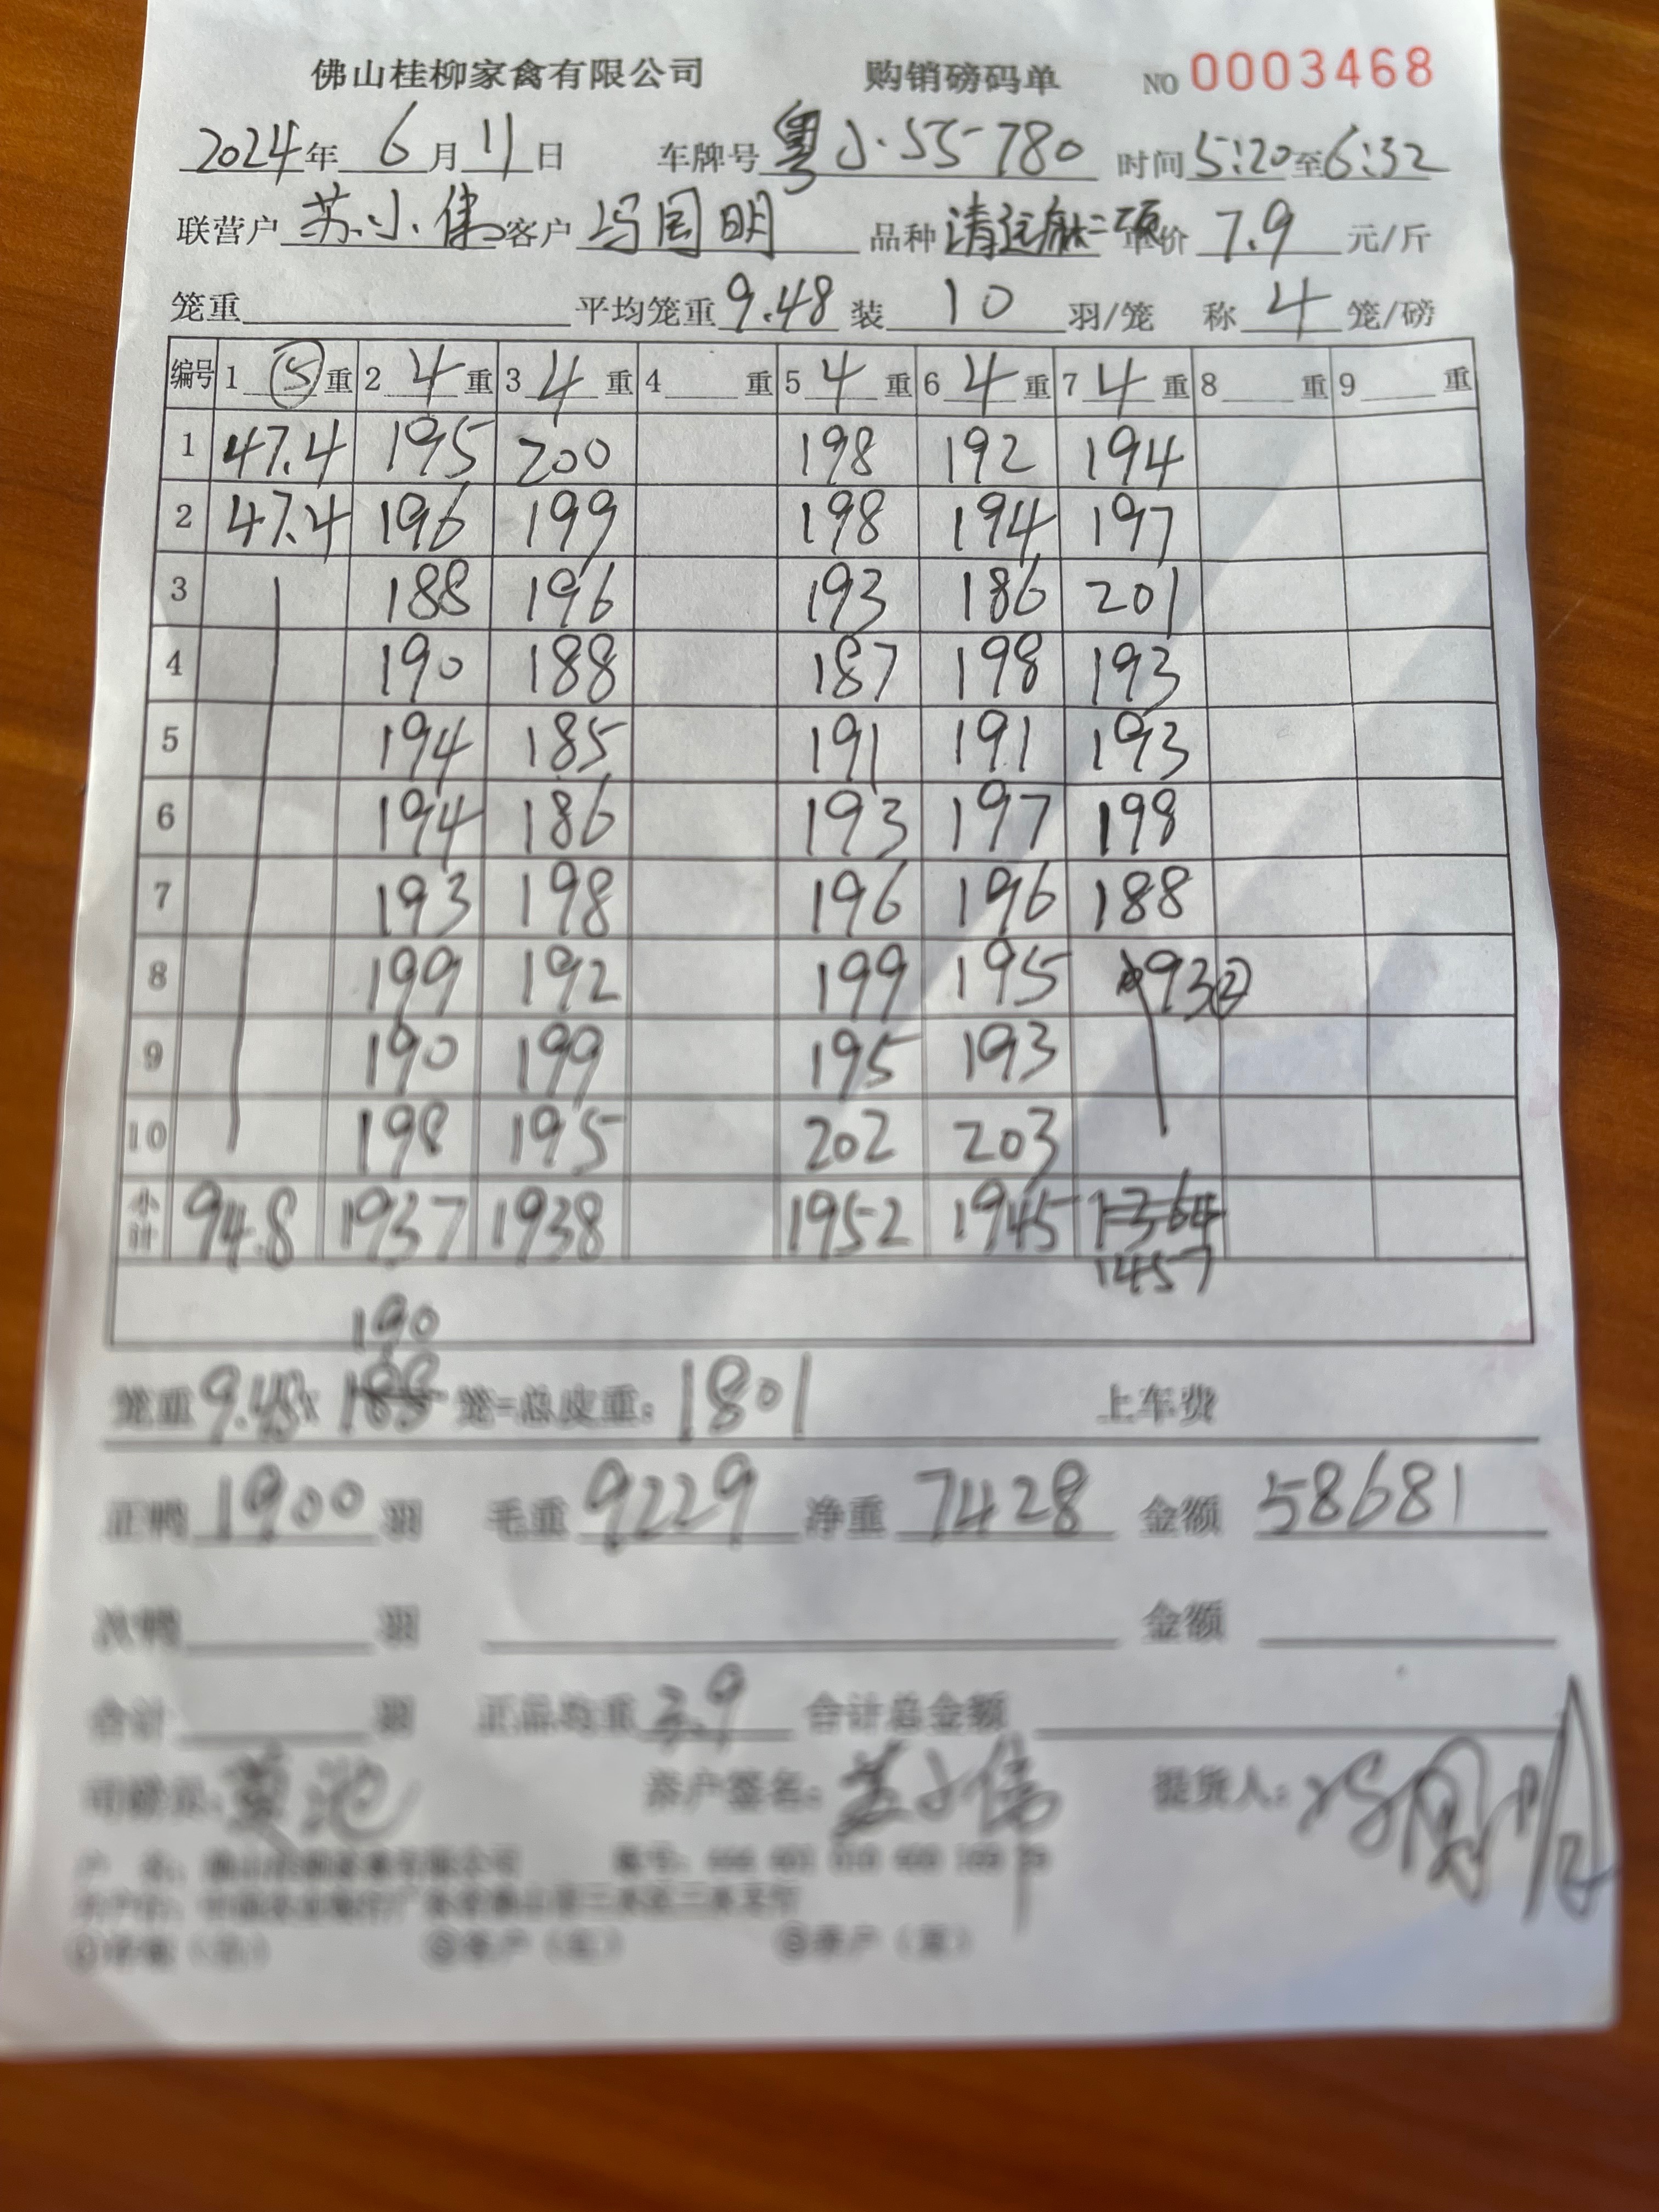 佛山桂柳家禽有限公司 购销磅码单 NO 0003468
2024年 6 月 11 日 车牌号 粤J·S5780 时间 5:20 至 6:32
联营户 苏小伟 客户 冯国明 品种 清远麻二项 单价 7.9 元/斤
笼重 平均笼重 9.48 装 10 羽/笼 称 4 笼/磅
编号 1 ⑤ 重 2 4 重 3 4 重 4 重 5 4 重 6 4 重 7 4 重 8 重 9 重
1 47.4 195 200 198 192 194
2 47.4 196 199 198 194 197
3 188 196 193 186 201
4 190 188 187 198 193
5 194 185 191 191 193
6 194 186 193 197 198
7 193 198 196 196 188
8 199 192 199 195 93②
9 190 199 195 193
10 198 195 202 203
小计 94.8 1937 1938 1952 1945 1364
1457
190
笼重 9.48 x 188 笼=总皮重: 1801 上车费
正鸭 1900 羽 毛重 9229 净重 7428 金额 58681
次鸭 羽 金额
合计 羽 正品均重 3.9 合计总金额
司磅员: 养户签名: 苏小伟 提货人: 冯国明